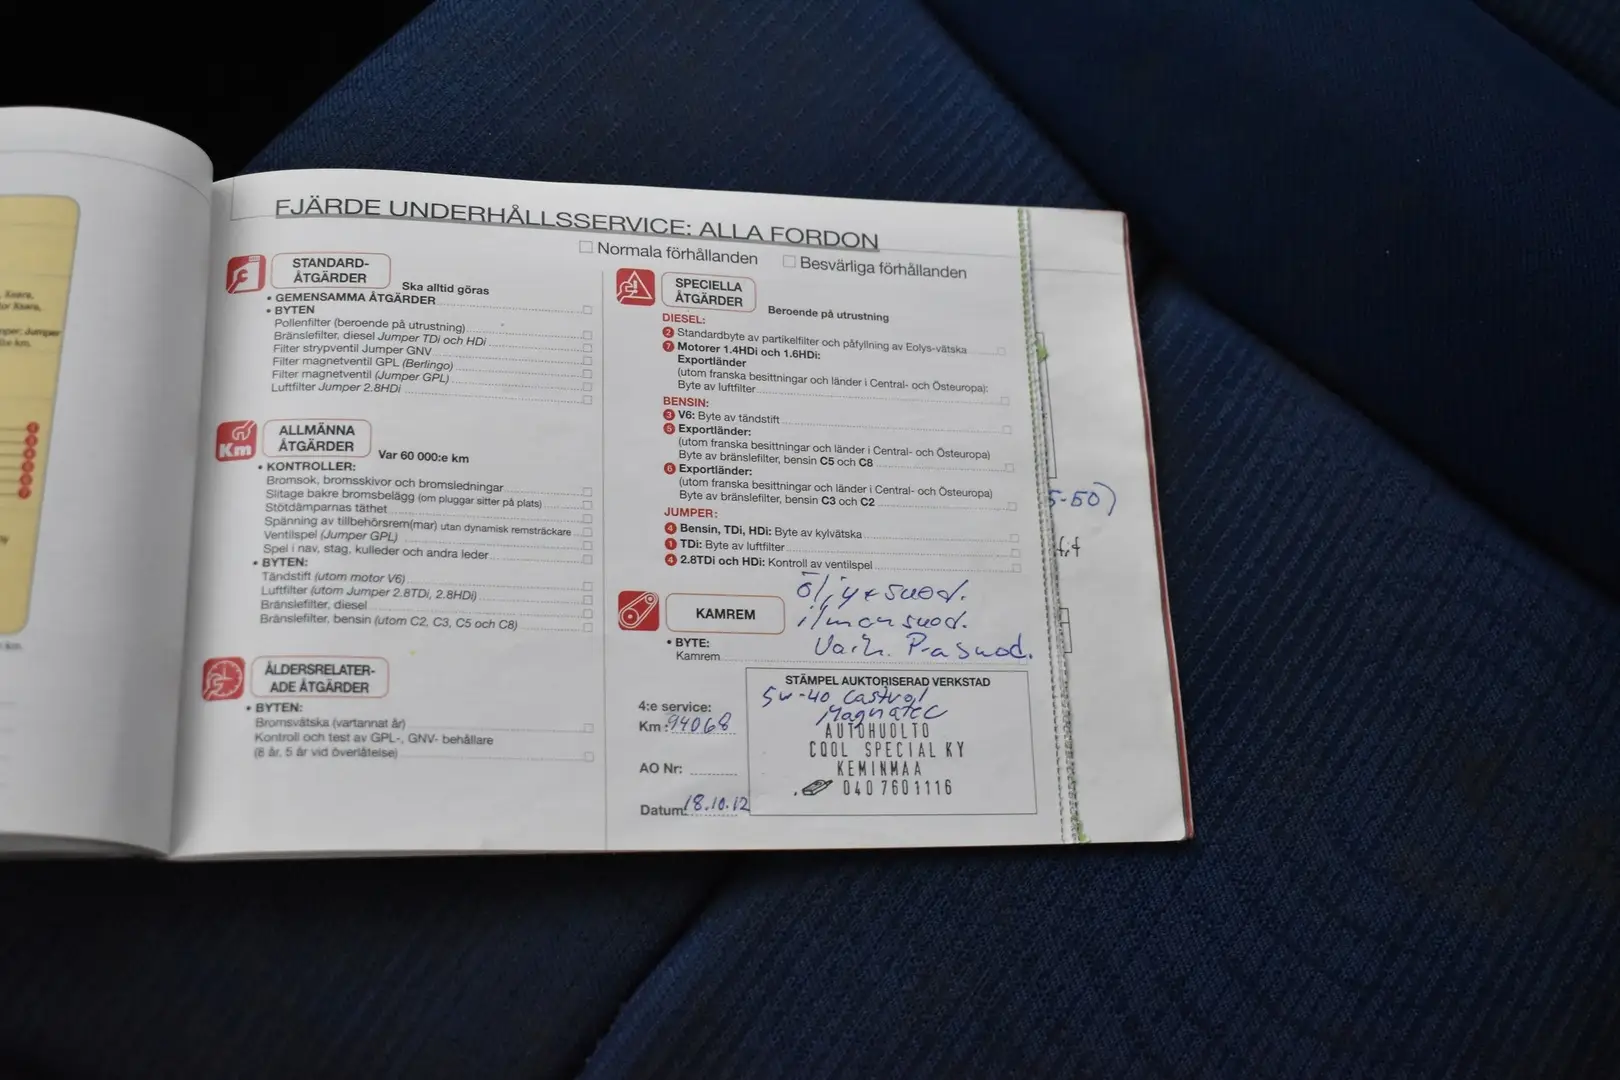 FJÄRDE UNDERHÅLLSSERVICE: ALLA FORDON
Normala förhållanden
Besvärliga förhållanden
STANDARD-
ÅTGÄRDER
Ska alltid göras
• GEMENSAMMA ÅTGÄRDER
• BYTEN
Pollenfilter (beroende på utrustning)
Bränslefilter, diesel Jumper TDi och HDi
Filter strypventil Jumper GNV
Filter magnetventil GPL (Berlingo)
Filter magnetventil (Jumper GPL)
Luftfilter Jumper 2.8HDi
Km
ALLMÄNNA
ÅTGÄRDER
Var 60 000:e km
• KONTROLLER:
Bromsok, bromsskivor och bromsledningar
Slitage bakre bromsbelägg (om pluggar sitter på plats)
Stötdämparnas täthet
Spänning av tillbehörsrem(mar) utan dynamisk remsträckare
Ventilspel (Jumper GPL)
Spel i nav, stag, kulleder och andra leder
• BYTEN:
Tändstift (utom motor V6)
Luftfilter (utom Jumper 2.8TDi, 2.8HDi)
Bränslefilter, diesel
Bränslefilter, bensin (utom C2, C3, C5 och C8)
ÅLDERSRELATER-
ADE ÅTGÄRDER
• BYTEN:
Bromsvätska (vartannat år)
Kontroll och test av GPL-, GNV- behållare
(8 år, 5 år vid överlåtelse)
SPECIELLA
ÅTGÄRDER
Beroende på utrustning
DIESEL:
2 Standardbyte av partikelfilter och påfyllning av Eolys-vätska
7 Motorer 1.4HDi och 1.6HDi:
Exportländer
(utom franska besittningar och länder i Central- och Östeuropa):
Byte av luftfilter
BENSIN:
3 V6: Byte av tändstift
5 Exportländer:
(utom franska besittningar och länder i Central- och Östeuropa)
Byte av bränslefilter, bensin C5 och C8
6 Exportländer:
(utom franska besittningar och länder i Central- och Östeuropa)
Byte av bränslefilter, bensin C3 och C2
JUMPER:
4 Bensin, TDi, HDi: Byte av kylvätska
1 TDi: Byte av luftfilter
4 2.8TDi och HDi: Kontroll av ventilspel
öljy + suod.
ilmansuod.
Vaih. Pasuod.
KAMREM
• BYTE:
Kamrem
STÄMPEL AUKTORISERAD VERKSTAD
5w-40 Castrol
Magnatec
AUTOHUOLTO
COOL SPECIAL KY
KEMINMAA
040 7601116
4:e service:
Km: 94068
AO Nr:
Datum: 18.10.12
5-50)